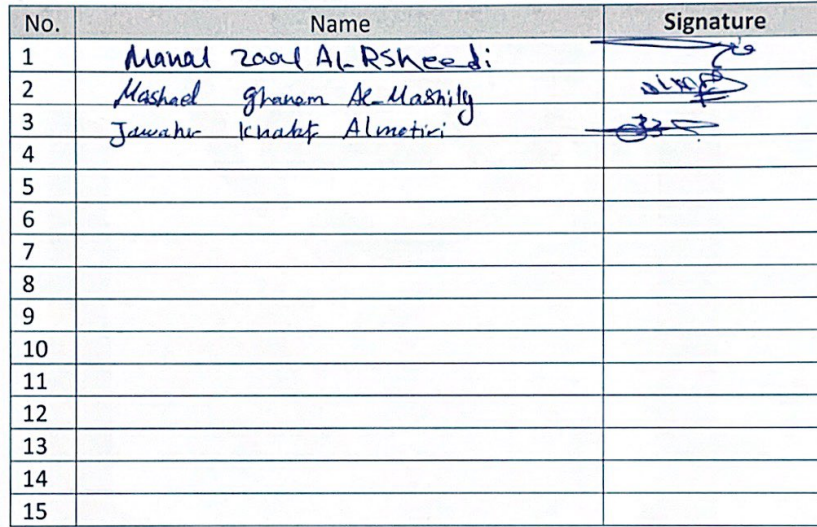 No. Name Signature
1 Manal Zaal AL-RSheedi
2 Mashael ghanam Al-Mashily
3 Jawahr Khalf Almotiri
4
5
6
7
8
9
10
11
12
13
14
15